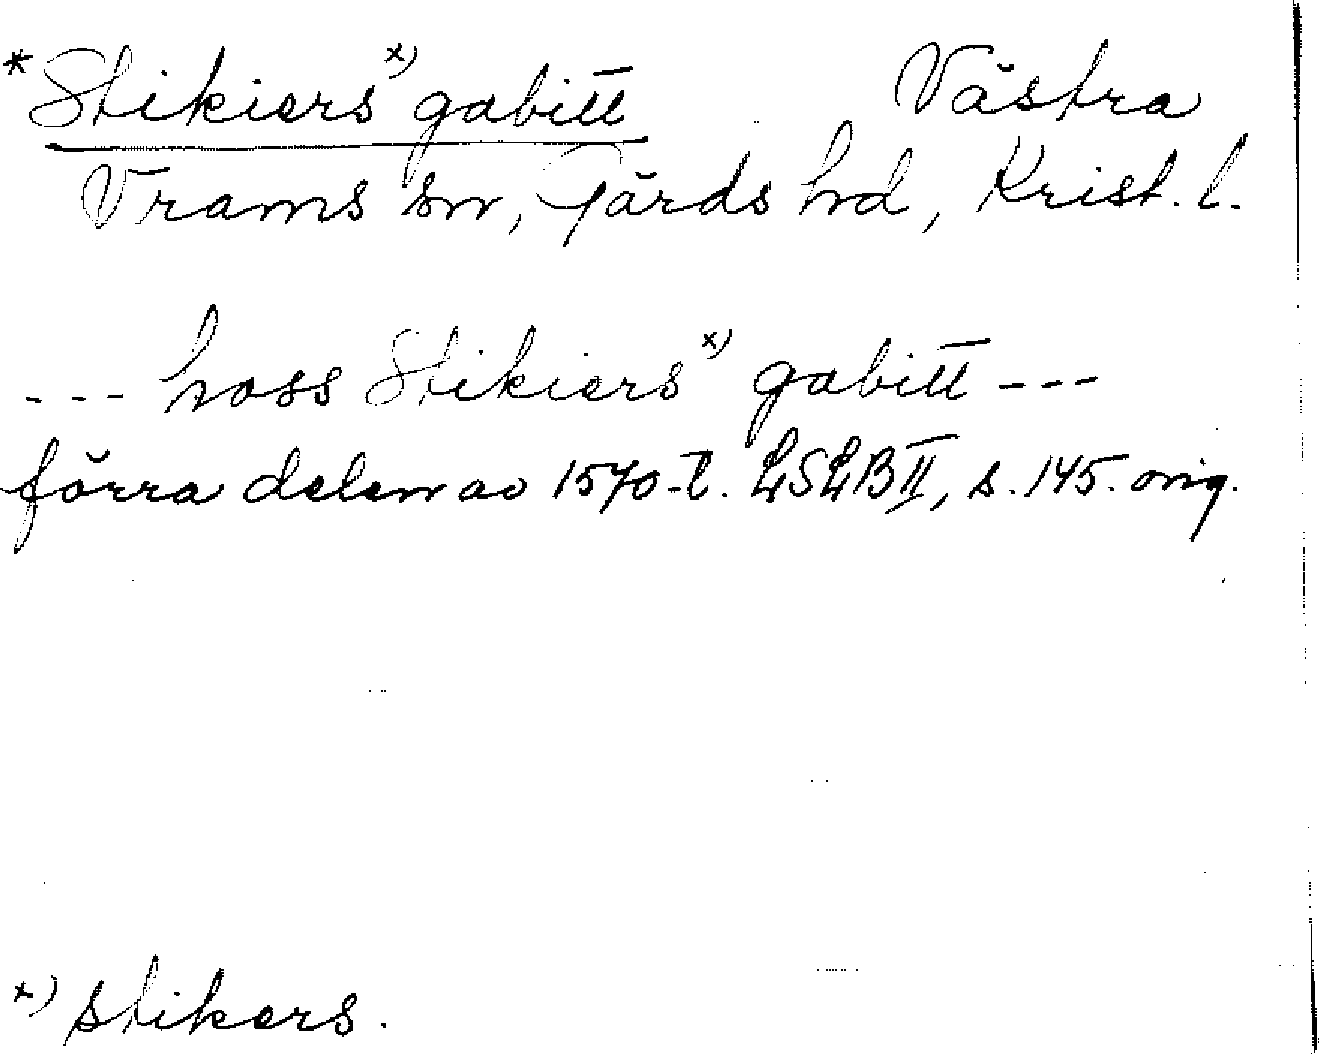 *Stikiers x) gabitt Västra
Vrams sn, Gärds hd, Krist. l.
--- hoss Stikiers x) gabitt ---
förra delen av 1570-t. LSLB II, s. 145. orig.
x) stikers.